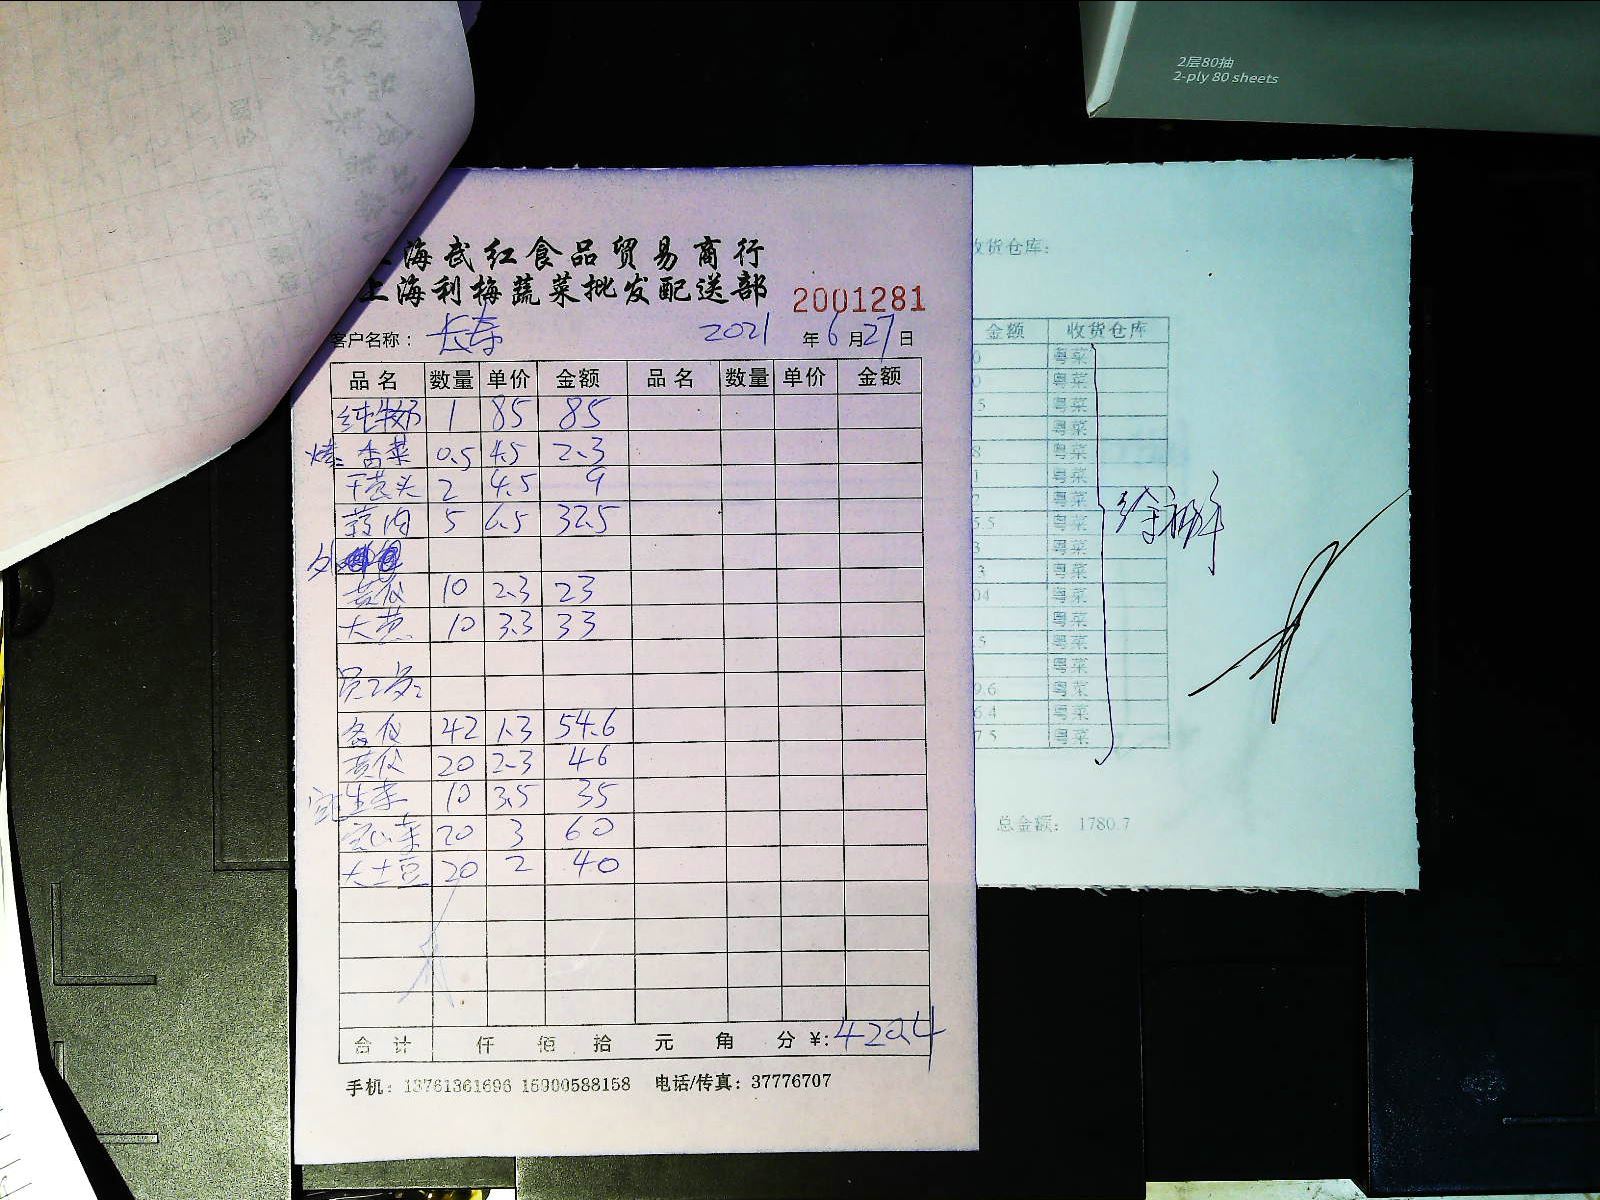 2层80抽
2-ply 80 sheets
海武红食品贸易商行
上海利梅蔬菜批发配送部
2001281
客户名称： 长寿 2021 年 6 月 27 日
品名 数量 单价 金额 品名 数量 单价 金额
纯牛奶 1 85 85
香菜 0.5 4.5 2.3
干葱头 2 4.5 9
5 6.5 32.5
外
黄瓜 10 2.3 23
大葱 10 3.3 33
冬瓜 42 1.3 54.6
黄瓜 20 2.3 46
生菜 10 3.5 35
20 3 60
大土豆 20 2 40
合计 仟 佰 拾 元 角 分 ¥: 420.4
手机： 13761361696 15900588158 电话/传真：37776707
收货仓库:
金额 收货仓库
0 粤菜
0 粤菜
5 粤菜
粤菜
8 粤菜
1 粤菜
7 粤菜
5.5 粤菜
3 粤菜
3 粤菜
04 粤菜
粤菜
5 粤菜
粤菜
9.6 粤菜
6.4 粤菜
7.5 粤菜
总金额： 1780.7